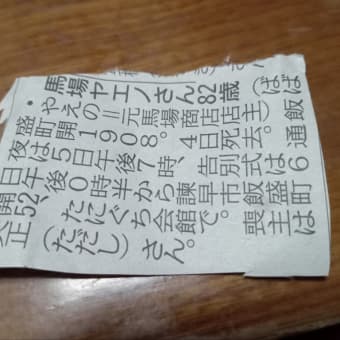 馬場ヤエノさん82歳(ばば
やえの=元馬場商店店主)飯
盛町開1908。4日死去。通
夜は5日午後7時、告別式は6
日午後0時半から諫早市飯盛町
開52、たにぐち会館で。喪主は
正(ただし)さん。